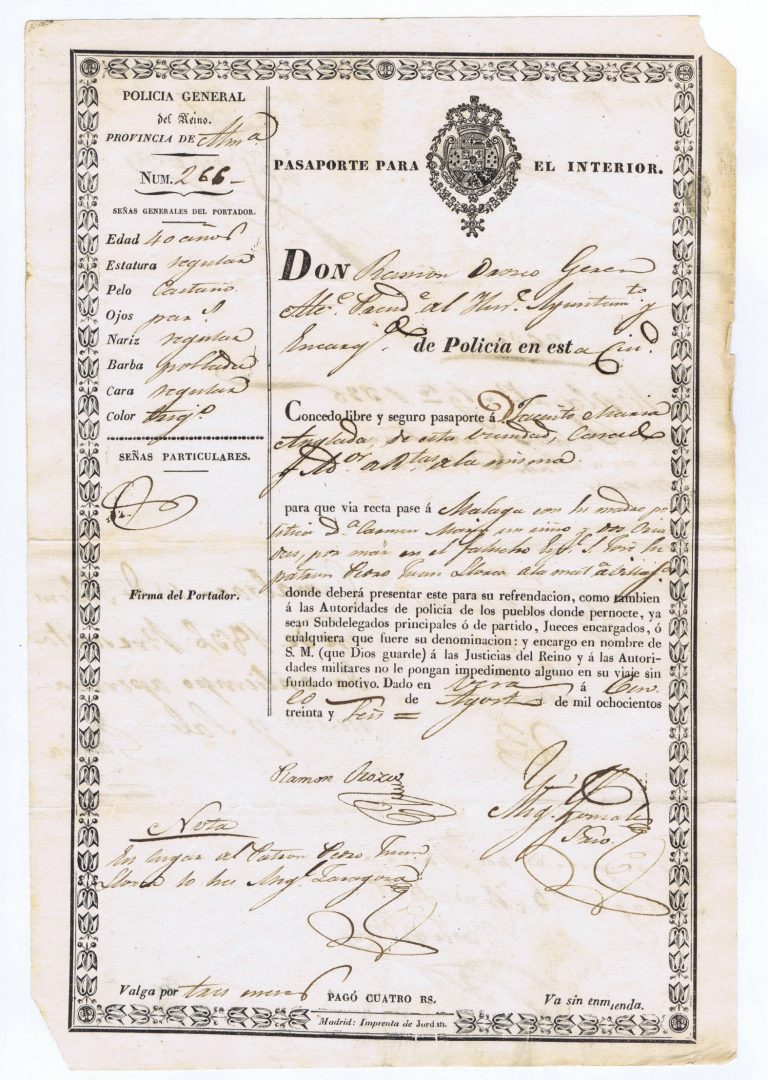 POLICIA GENERAL
del Reino.
PROVINCIA DE Alm.a
NUM. 266
SEÑAS GENERALES DEL PORTADOR.
Edad 40 años
Estatura regular
Pelo Castaño
Ojos pard.s
Nariz regular
Barba poblada
Cara regular
Color Trig.o
SEÑAS PARTICULARES.
Firma del Portador.
PASAPORTE PARA EL INTERIOR.
DON Ramon Orozco Geren
Alc.e Presid.e al Ylus.e Ayuntam.to y
Encarg.do de Policía en esta Ciu.d
Concedo libre y seguro pasaporte á Jacinto Maria
Anglada, de esta vecindad,
de la misma
para que via recta pase á Malaga con su madre po
litica D.a Carmen Maria un niño y dos Cria
das, por mar en el falucho
patron Pedro Juan Llorca a la mat.a
donde deberá presentar este para su refrendacion, como tambien
á las Autoridades de policía de los pueblos donde pernocte, ya
sean Subdelegados principales ó de partido, Jueces encargados, ó
cualquiera que fuere su denominacion: y encargo en nombre de
S. M. (que Dios guarde) á las Justicias del Reino y á las Autori-
dades militares no le pongan impedimento alguno en su viaje sin
fundado motivo. Dado en Vera á
de Agosto de mil ochocientos
treinta y Seis =
Ramon Orozco
Ang.l Gonzalez
Srio.
Nota
En lugar del Patron Pedro Juan
Llorca lo hes Ang.l Zaragoza
Valga por tres meses
PAGÓ CUATRO RS.
Va sin enmienda.
Madrid: Imprenta de Jordan.